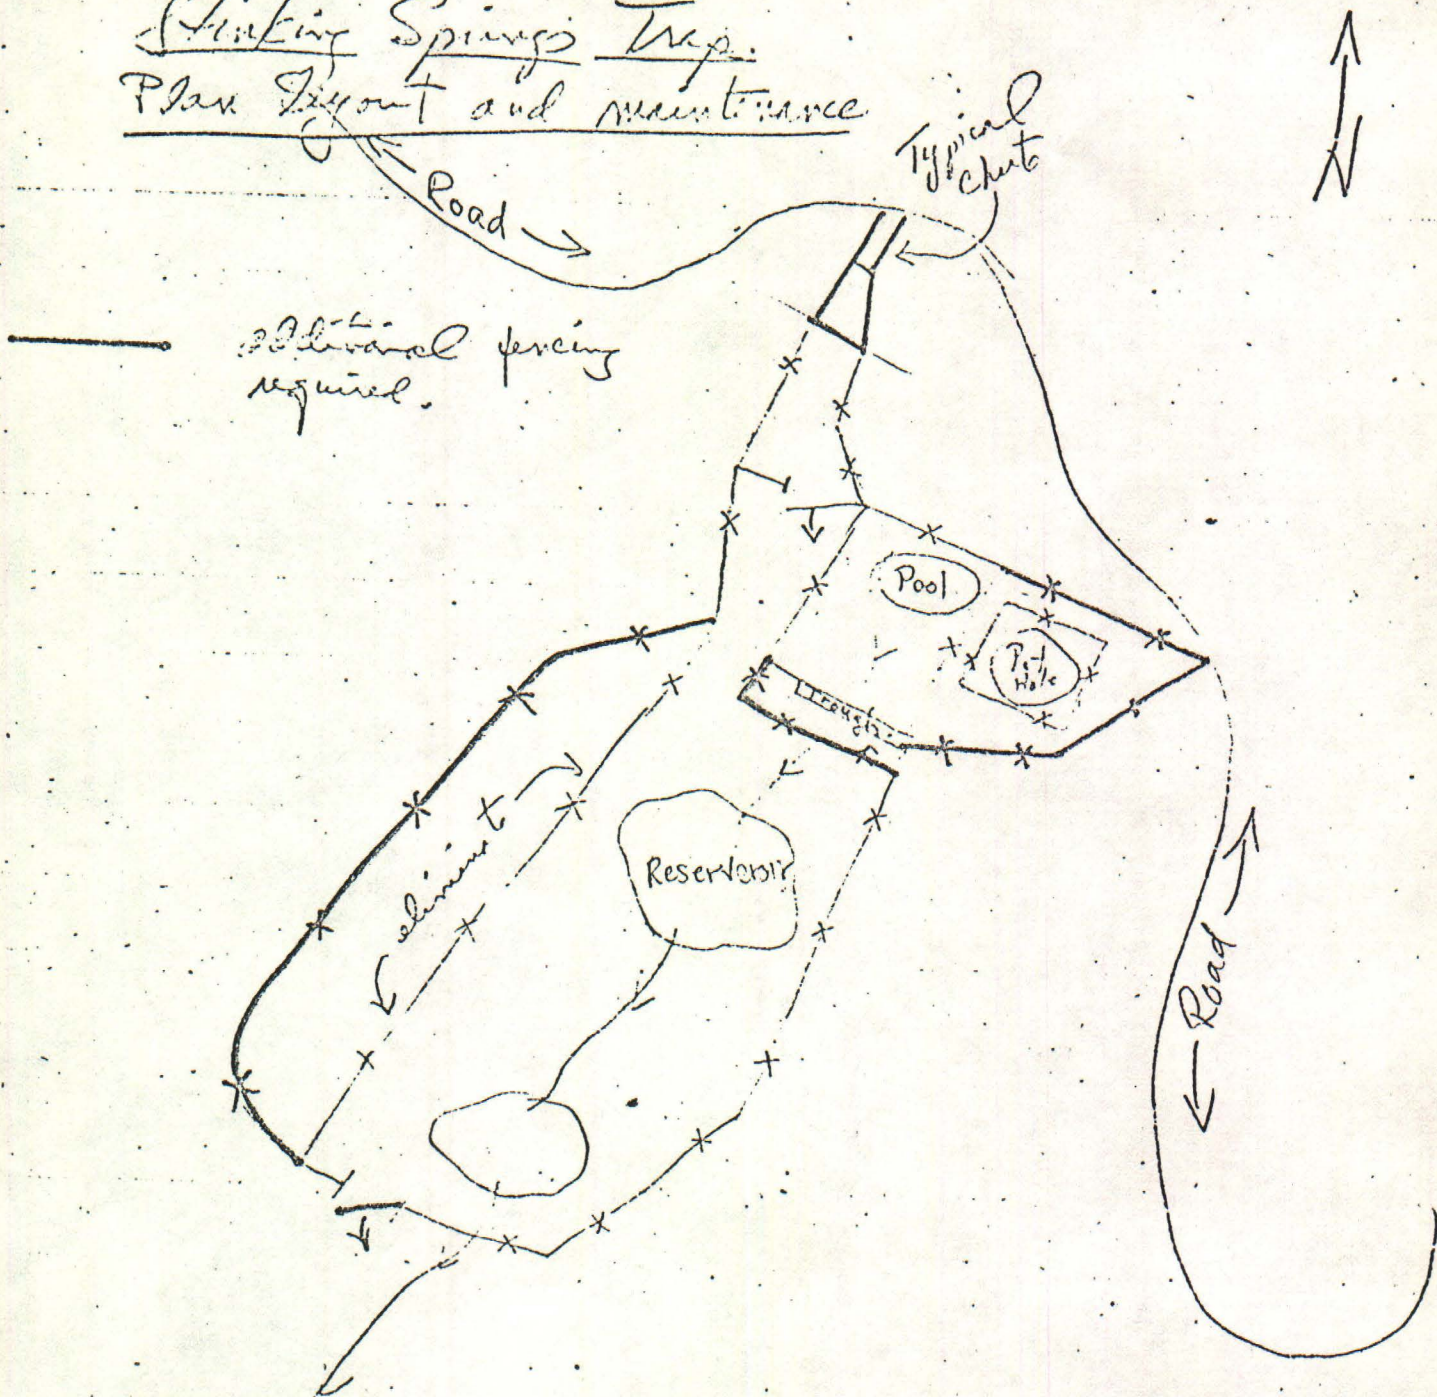 Stinking Springs Trap.
Plan Layout and maintinance
Typical
chute
N
Road
additional fencing
required.
Pool
Pot
Hole
Trough
eliminate
Reservervoir
Road